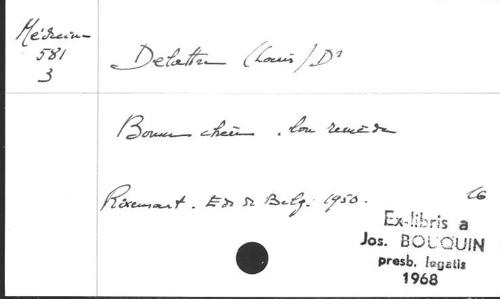 Médecine
581
3
Delattre (Louis) Dr
Bonne chère, bon remède
Rixensart. Ed. de Belg. 1950.
16
Ex-libris a
Jos. BOUQUIN
presb. legatis
1968